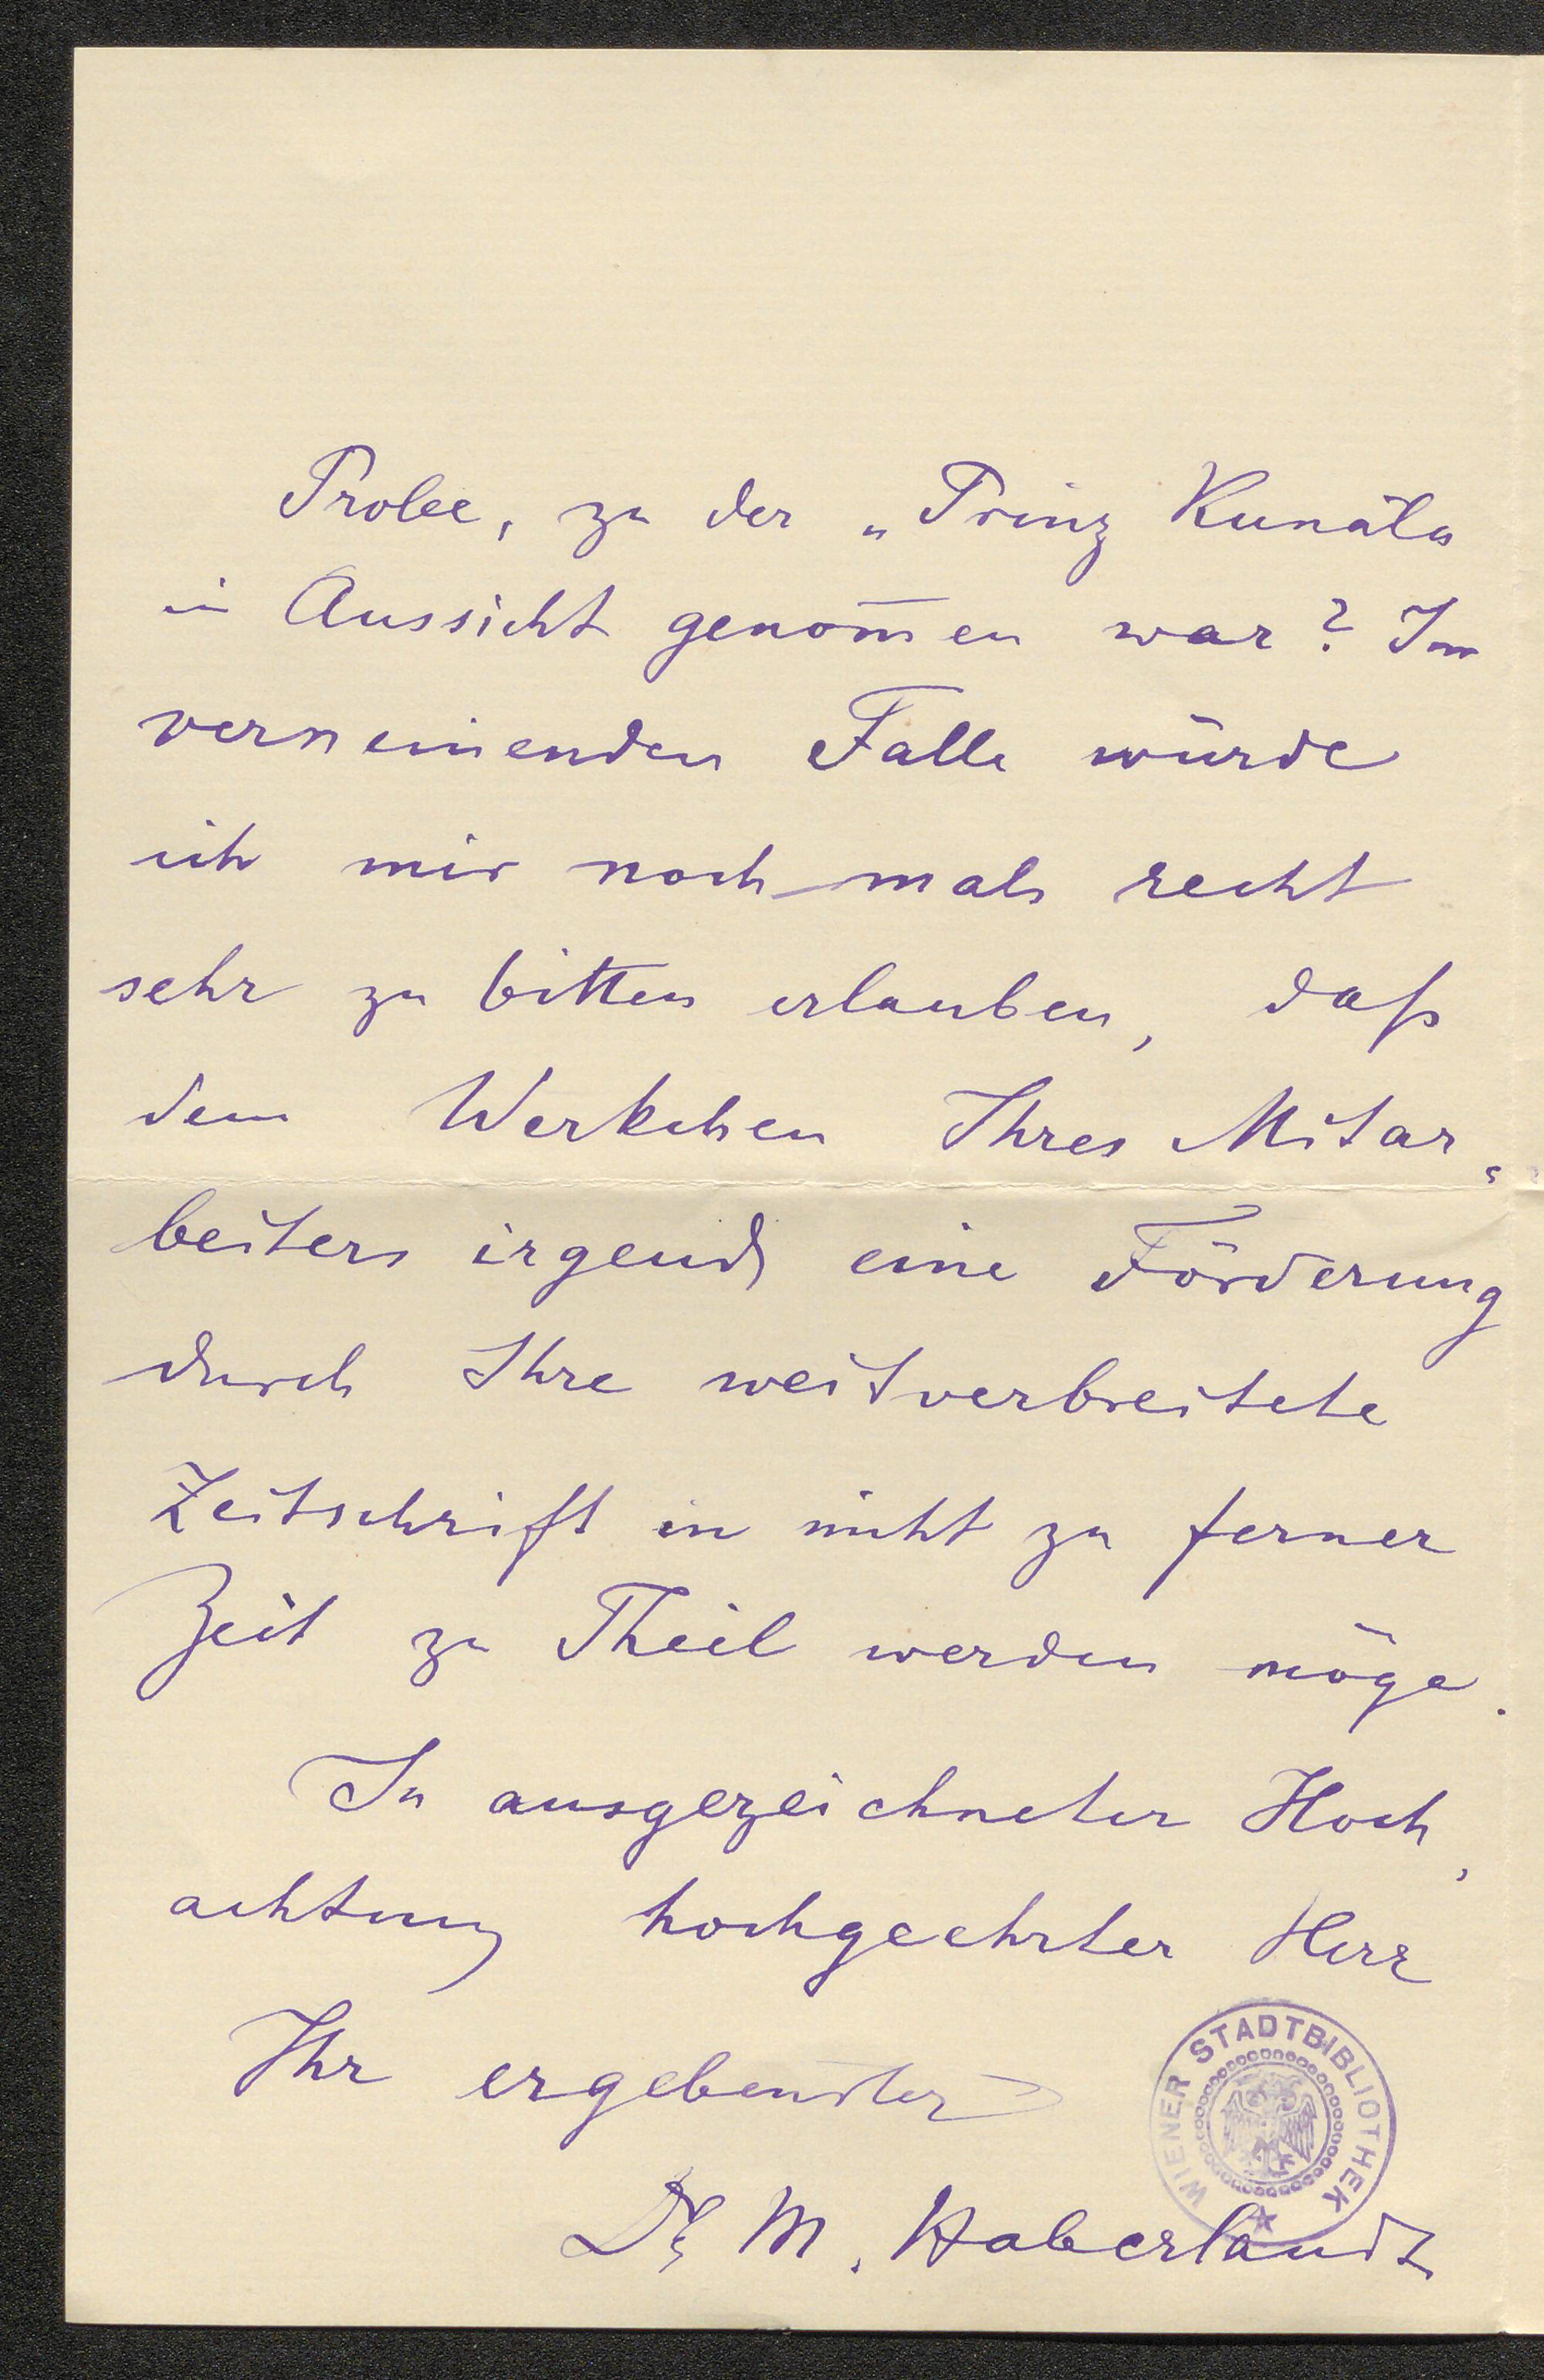 Probe, zu der „Prinz Kunâla
in Aussicht genom̅en war? Im
verneinenden Falle würde
ich mir nochmals recht
sehr zu bitten erlauben, daß
dem Werkchen Ihres Mitar„
beiters irgend eine Förderung
durch Ihre weitverbreitete
Zeitschrift in nicht zu ferner
Zeit zu Theil werden möge.
In ausgezeichneter Hoch„
achtung hochgeehrter Herr
Ihr ergebenster
WIENER STADTBIBLIOTHEK
Dr M. Haberlandt